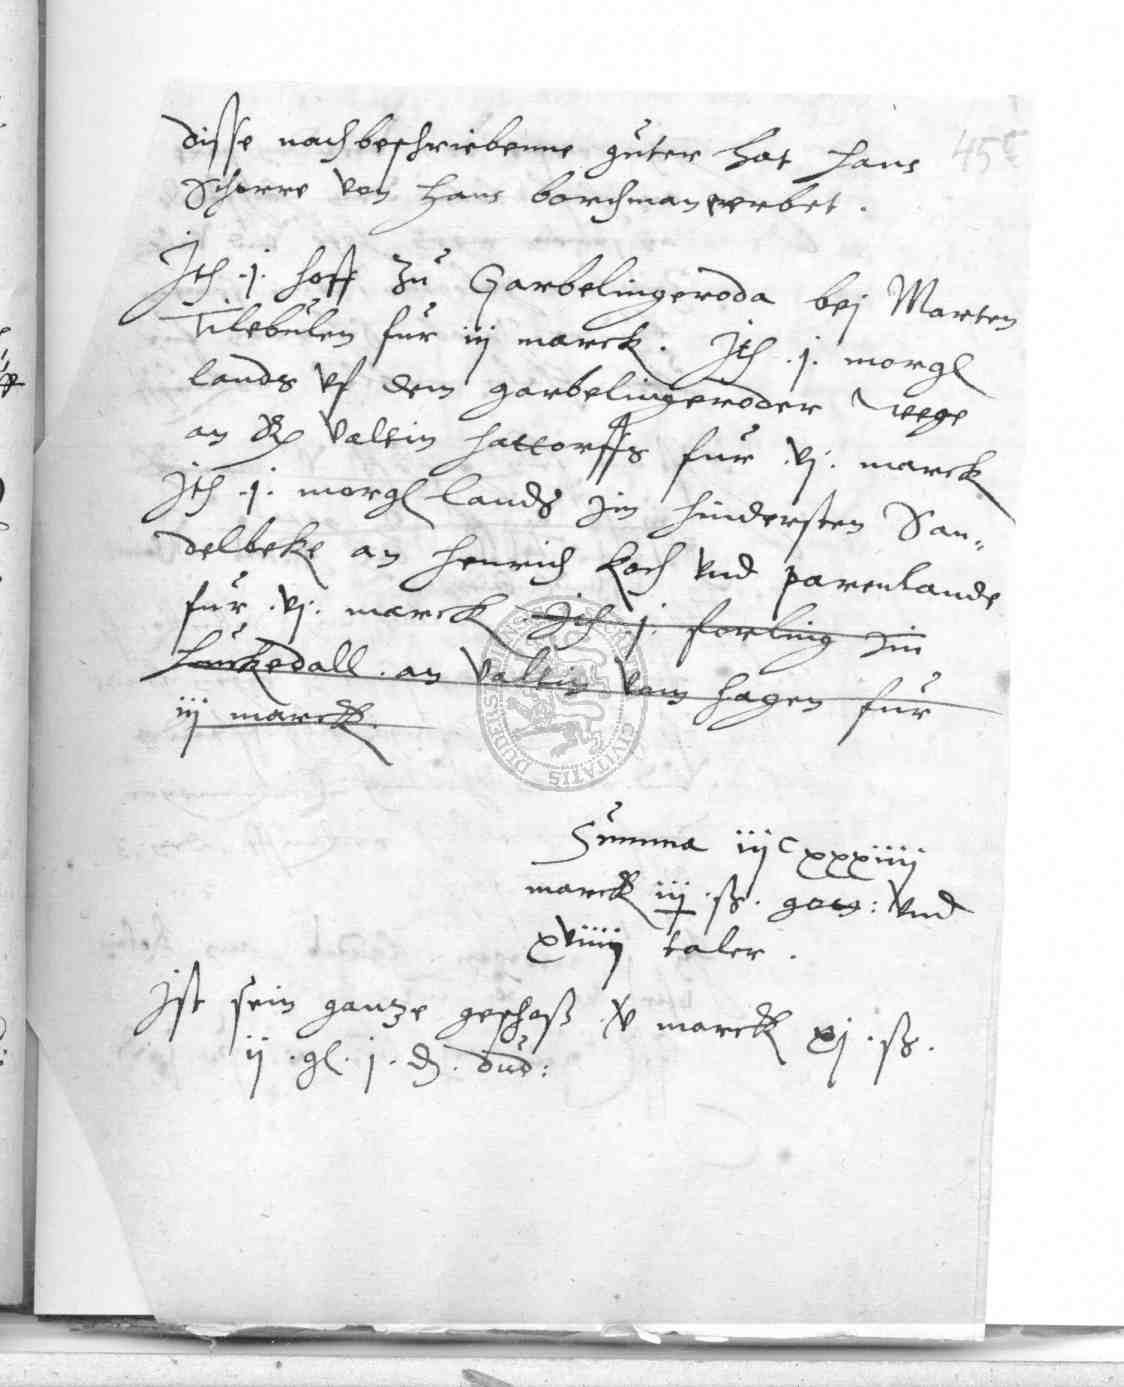 disse nachbeschriebenne guter hat Hans
Schorre von Hans borchman ererbet .
Jtem .j. hoff zu Garbelingeroda bej Marten
Tilebulen fur iij marck . Jtem .j. morgen
lands vf dem garbelingeroder wege
an Valtin hattorffs fur .vj. marck
Jtem .j. morgen lands im hindersten San-
delbeke an Henrich Koch vnd parenlande
fur .vj. marck . Jtem .j. forling im
Linkedall . an Valtin vom Hagen fur
iij marck .
45
Summa iijC xxxiiij
marck iij .ß. vnd
xviiij taler .
Jst sein gantze geschoß v marck xj .ß.
ij . gl . j . d . dud :
CIVITATIS DUDERST